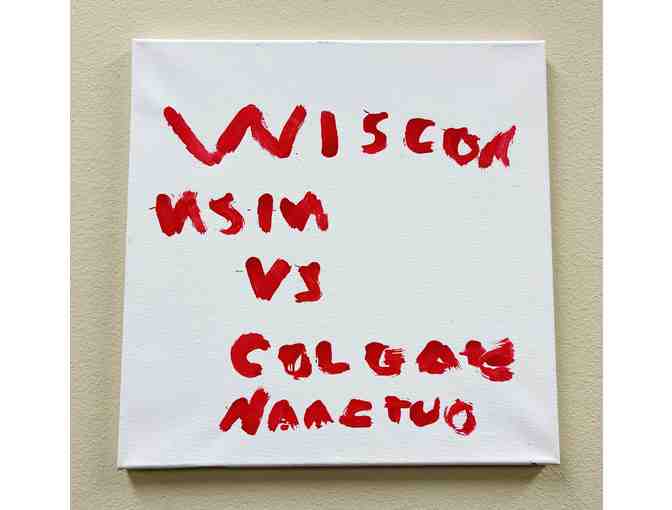 WISCON
NSIN
VS
COLGATE
NAACTUO